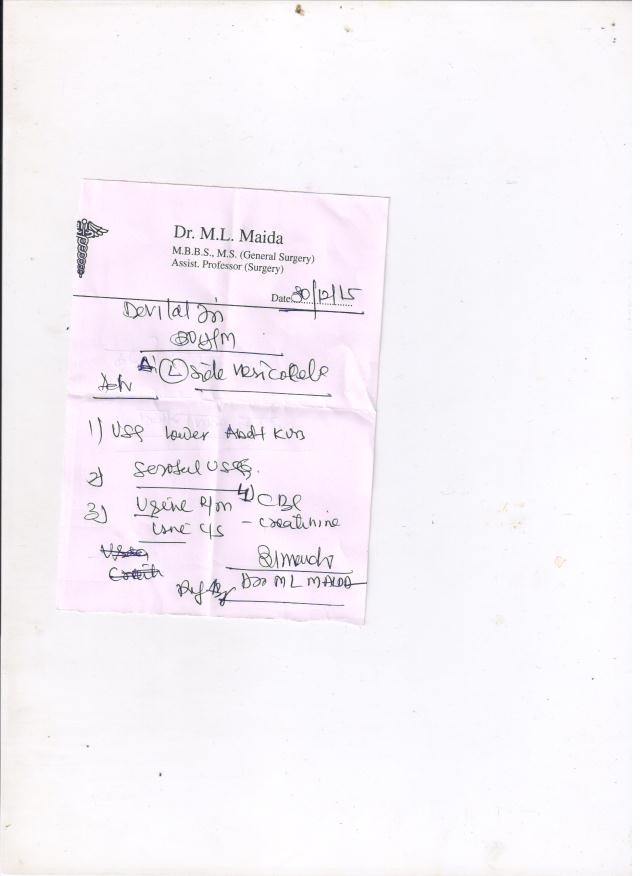 Dr. M.L. Maida
M.B.B.S., M.S. (General Surgery)
Assist. Professor (Surgery)
Date: 30/12/15
Devilal Ji
Side vericokele
Adv
1) USG lower Abd KUB
2) Serotul USG.
3) Urine R/M 4) CBC
Urine C/S - creatinine
Dr. M L MAIDA
Ref By